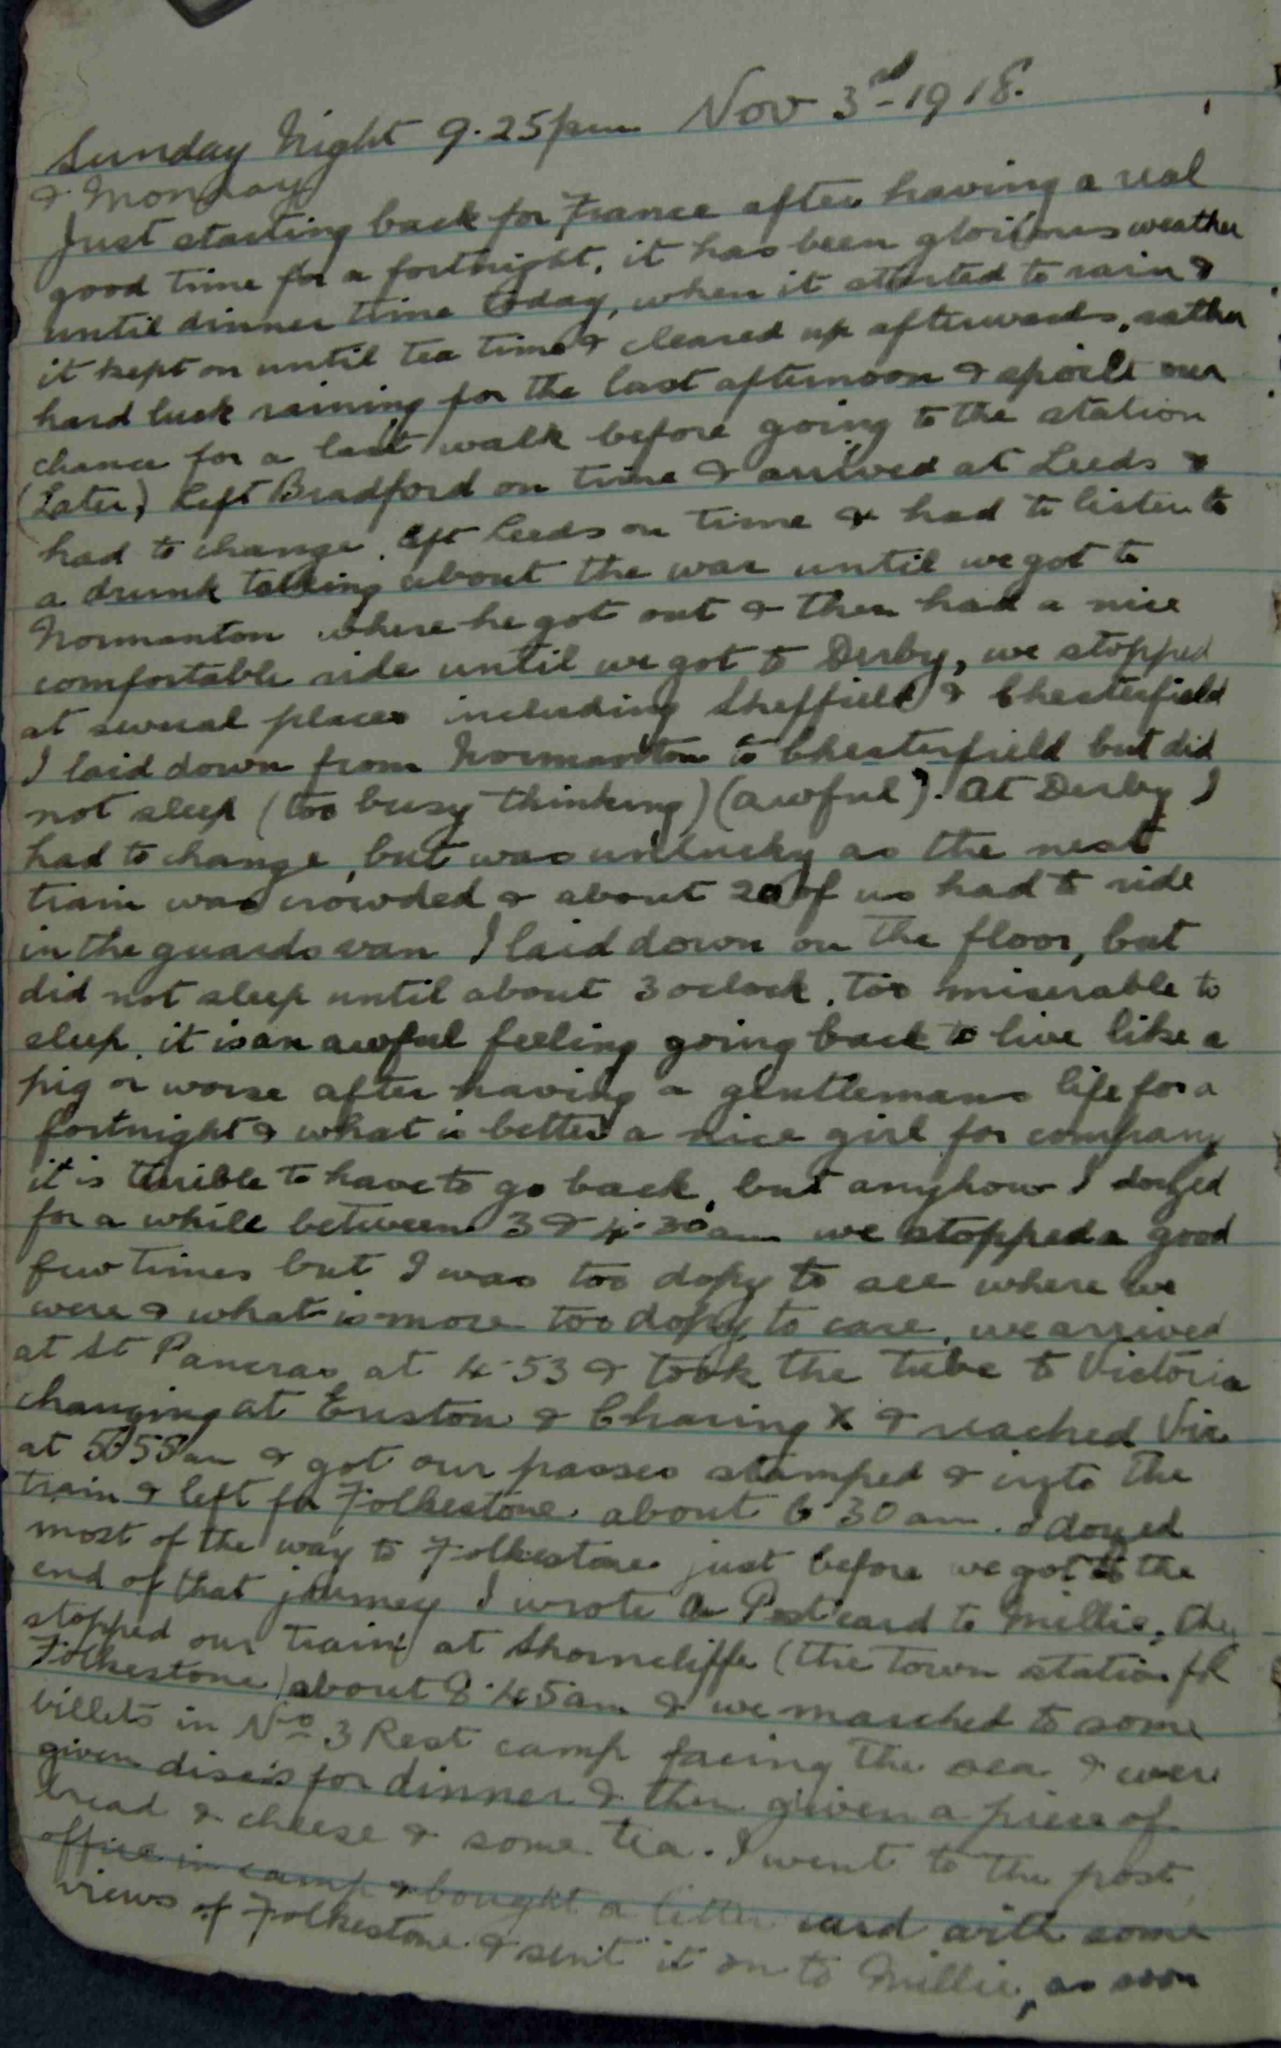 Sunday Night 9.25pm Nov 3rd-1918.
& Monday
Just starting back for France after having a real
good time for a fortnight, it has been glorious weather
until dinner time today, when it started to rain &
it kept on until tea time & cleared up afterwards, rather
hard luck raining for the last afternoon & spoilt our
chance for a last walk before going to the station
(Later) left Bradford on time & arrived at Leeds &
had to change. left Leeds on time & had to listen to
a drunk talking about the war until we got to
Normanton where he got out & then had a nice
comfortable ride until we got to Derby, we stopped
at several places including Sheffield & Chesterfield
I laid down from Normanton to Chesterfield but did
not sleep (too busy thinking) (awful). At Derby I
had to change, but was unlucky as the next
train was crowded & about 20 of us had to ride
in the guards van I laid down on the floor, but
did not sleep until about 3 oclock. too miserable to
sleep. it is an awful feeling going back to live like a
pig or worse after having a gentlemans life for a
fortnight & what is better a nice girl for company
it is terrible to have to go back, but anyhow I dozed
for a while between 3 & 4.30am we stopped a good
few times but I was too dopy to see where we
were & what is more too dopy to care. we arrived
at St Pancras at 4.53 & took the tube to Victoria
changing at Euston & Charing X & reached Vic
at 5.55am & got our passes stamped & into the
train & left for Folkestone about 6.30am. I dozed
most of the way to Folkestone just before we got to the
end of that journey I wrote a Post card to Millie, they
stopped our train at Shorncliffe (the town station for
Folkestone) about 8.45am & we marched to some
billets in No 3 Rest camp facing the sea & were
given discs for dinner & then given a piece of
bread & cheese & some tea. I went to the post
office in camp & bought a letter card with some
views of Folkestone & sent it on to Millie, as soon